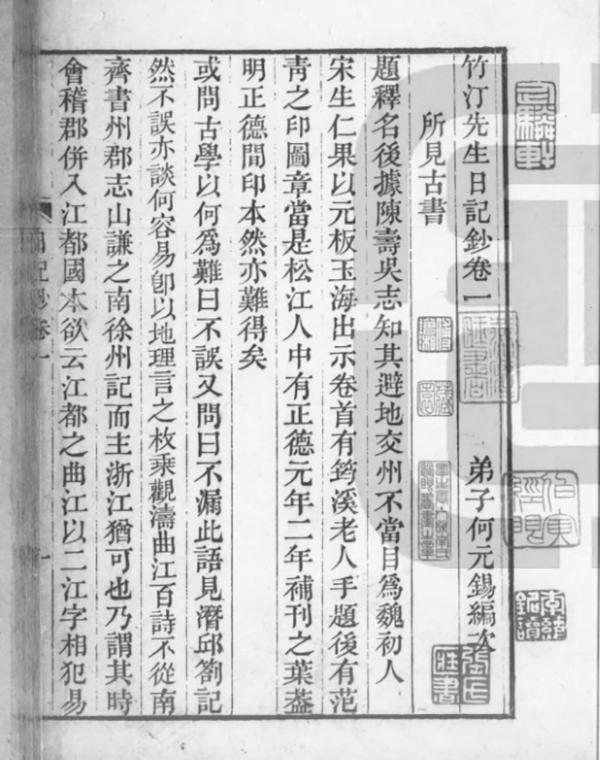 竹汀先生日記鈔卷一
弟子何元錫編次
所見古書
題釋名後據陳壽吳志知其避地交州不當目爲魏初人
宋生仁果以元板玉海出示卷首有筠溪老人手題後有范
靑之印圖章當是松江人中有正德元年二年補刊之葉葢
明正德間印本然亦難得矣
或問古學以何爲難曰不誤又問曰不漏此語見潛邱劄記
然不誤亦談何容易卽以地理言之枚乘觀濤曲江百詩不從南
齊書州郡志山謙之南徐州記而主浙江猶可也乃謂其時
會稽郡併入江都國本欲云江都之曲江以二江字相犯易
日記鈔卷一
一